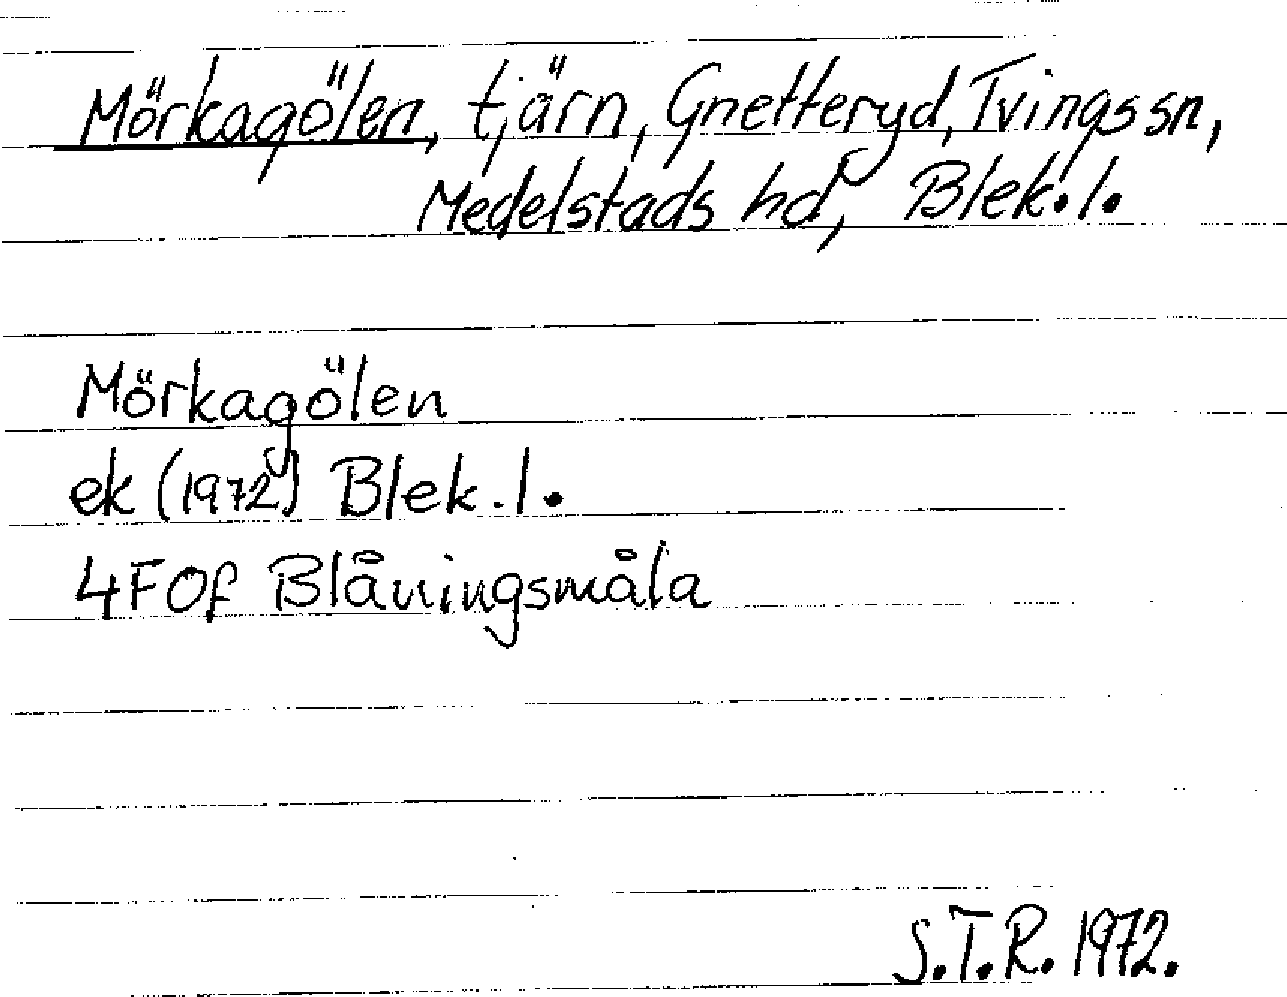 Mörkagölen, tjärn, Gnetteryd, Tvings sn,
Medelstads hd, Blek. l.
Mörkagölen
ek (1972) Blek. l.
4F0f Blåningsmåla
S.T.R. 1972.